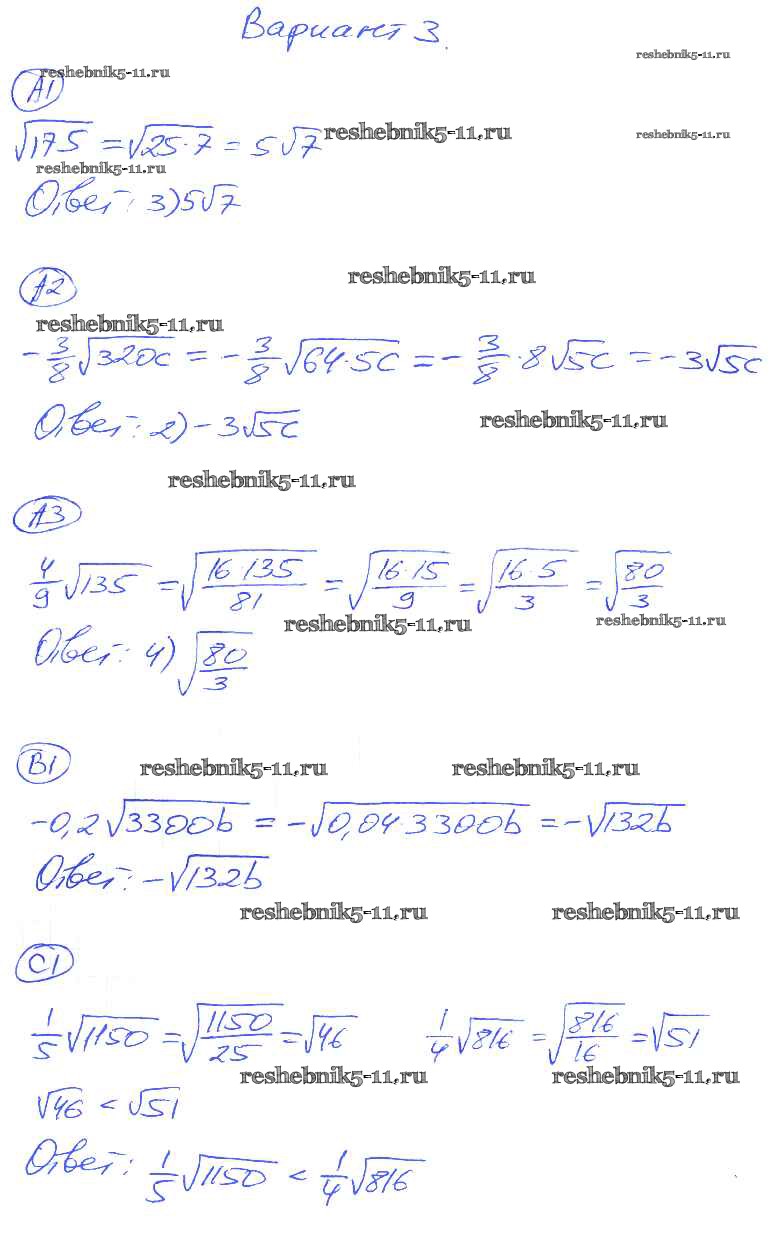 Вариант 3.
reshebnik5-11.ru
reshebnik5-11.ru
А1
√175 = √25·7 = 5√7
reshebnik5-11.ru
reshebnik5-11.ru
reshebnik5-11.ru
Ответ: 3) 5√7
А2
reshebnik5-11.ru
reshebnik5-11.ru
-3/8√320c = -3/8√64·5c = -3/8·8√5c = -3√5c
Ответ: 2) -3√5c
reshebnik5-11.ru
reshebnik5-11.ru
А3
4/9√135 = √(16·135/81) = √(16·15/9) = √(16·5/3) = √(80/3)
reshebnik5-11.ru
reshebnik5-11.ru
Ответ: 4) √(80/3)
В1
reshebnik5-11.ru
reshebnik5-11.ru
-0,2√3300b = -√0,04·3300b = -√132b
Ответ: -√132b
reshebnik5-11.ru
reshebnik5-11.ru
С1
1/5√1150 = √(1150/25) = √46 1/4√816 = √(816/16) = √51
reshebnik5-11.ru
reshebnik5-11.ru
√46 < √51
Ответ: 1/5√1150 < 1/4√816